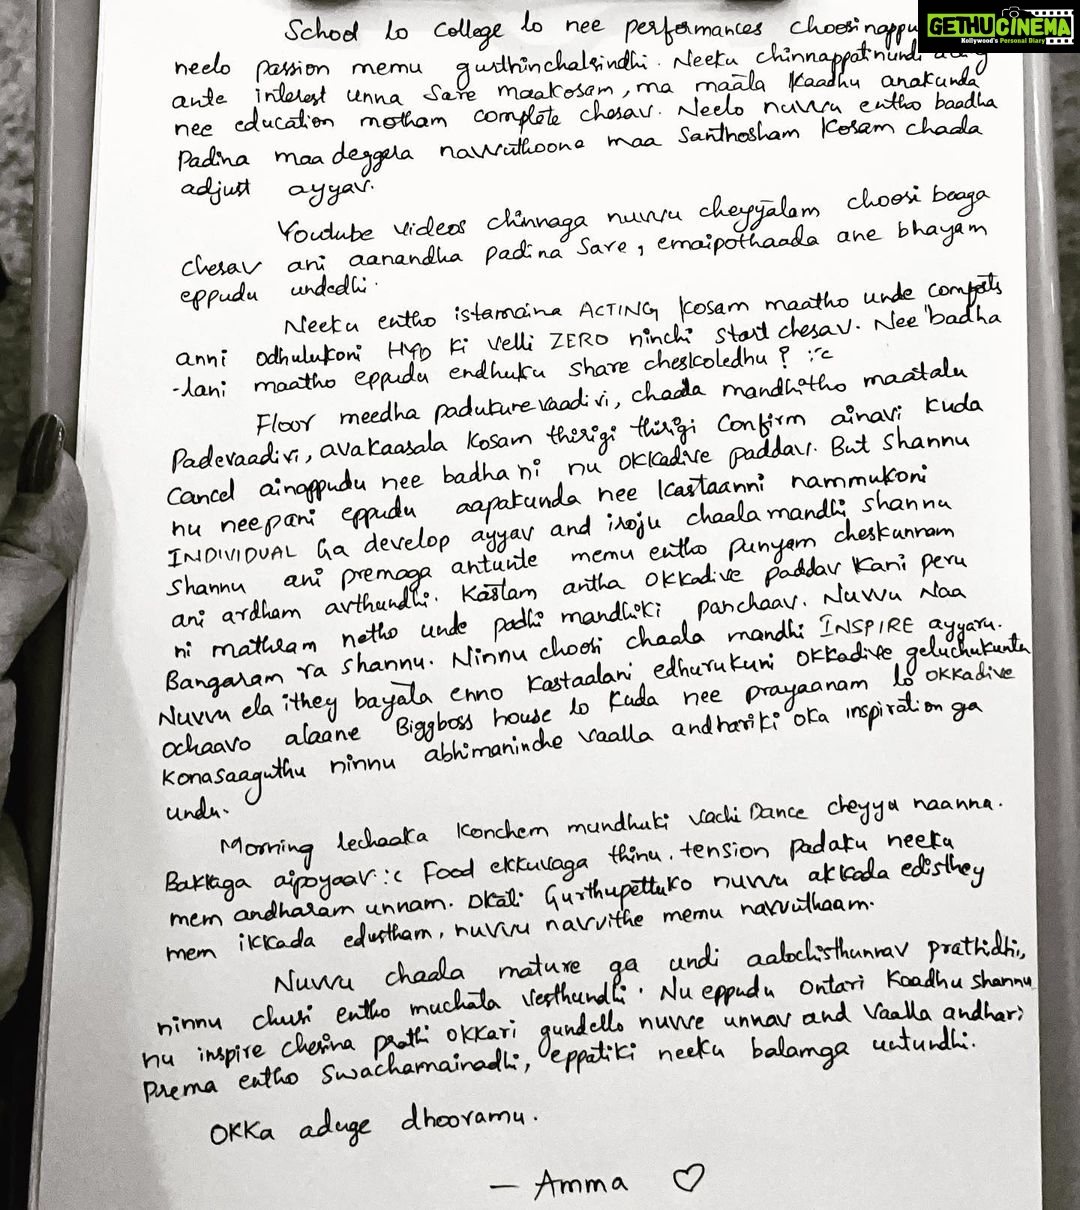 GETHU CINEMA
Kollywood's Personal Diary
School lo college lo nee performances choosinappu
neelo passion memu gurthinchalsindhi. Neeku chinnappatinundi
ante interest unna sare maakosam, ma maala kaadhu anakunda
nee education motham complete chesav. Neelo nuvvu entho baadha
padina maa deggera navvuthoone maa santhosham kosam chaala
adjust ayyav.
Youtube videos chinnaga nuvvu cheyyalam choosi baaga
chesav ani aanandha padina sare, emaipothaada ane bhayam
eppudu undedhi.
Neeku entho istamaina ACTING kosam maatho unde comforts
anni odhulukoni HYD ki velli ZERO ninchi start chesav. Nee badha
-lani maatho eppudu endhuku share cheskoledhu? :'c
Floor meedha padukunevaadivi, chaala mandhitho maatalu
padevaadivi, avakaasala kosam thirigi thirigi confirm ainavi kuda
cancel ainappudu nee badha ni nu okkadive paddav. But shannu
nu nee pani eppudu aapakunda nee kastaanni nammukoni
INDIVIDUAL ga develop ayyav and iroju chaala mandhi shannu
shannu ani premaga antunte memu entho punyam cheskunnam
ani ardham avthundhi. Kastam antha okkadive paddav kani peru
ni mathram netho unde padhi mandhiki panchaav. Nuvvu Naa
Bangaram ra shannu. Ninnu choosi chaala mandhi INSPIRE ayyaru.
Nuvvu ela ithey bayata enno kastaalani edhurukuni okkadive geluchukuntu
ochaavo alaane Biggboss house lo kuda nee prayaanam lo okkadive
konasaaguthu ninnu abhimaninche vaalla andhariki oka inspiration ga
undu.
Morning lechaaka konchem mundhuki vachi Dance cheyyu naanna.
Bakkaga aipoyaav :'c Food ekkuvaga thinu. tension padaku neeku
mem andharam unnam. Okati Gurthupettuko nuvvu akkada edisthey
mem ikkada edustham, nuvvu navvithe memu navvuthaam.
Nuvvu chaala mature ga undi aalochisthunnav prathidhi,
ninnu chusi entho muchata vesthundhi. Nu eppudu ontari kaadhu shannu
nu inspire chesina prathi okkari gundello nuvve unnav and vaalla andhari
prema entho swachamainadhi, eppatiki neeku balamga untundhi.
Okka aduge dhooramu.
— Amma ♡